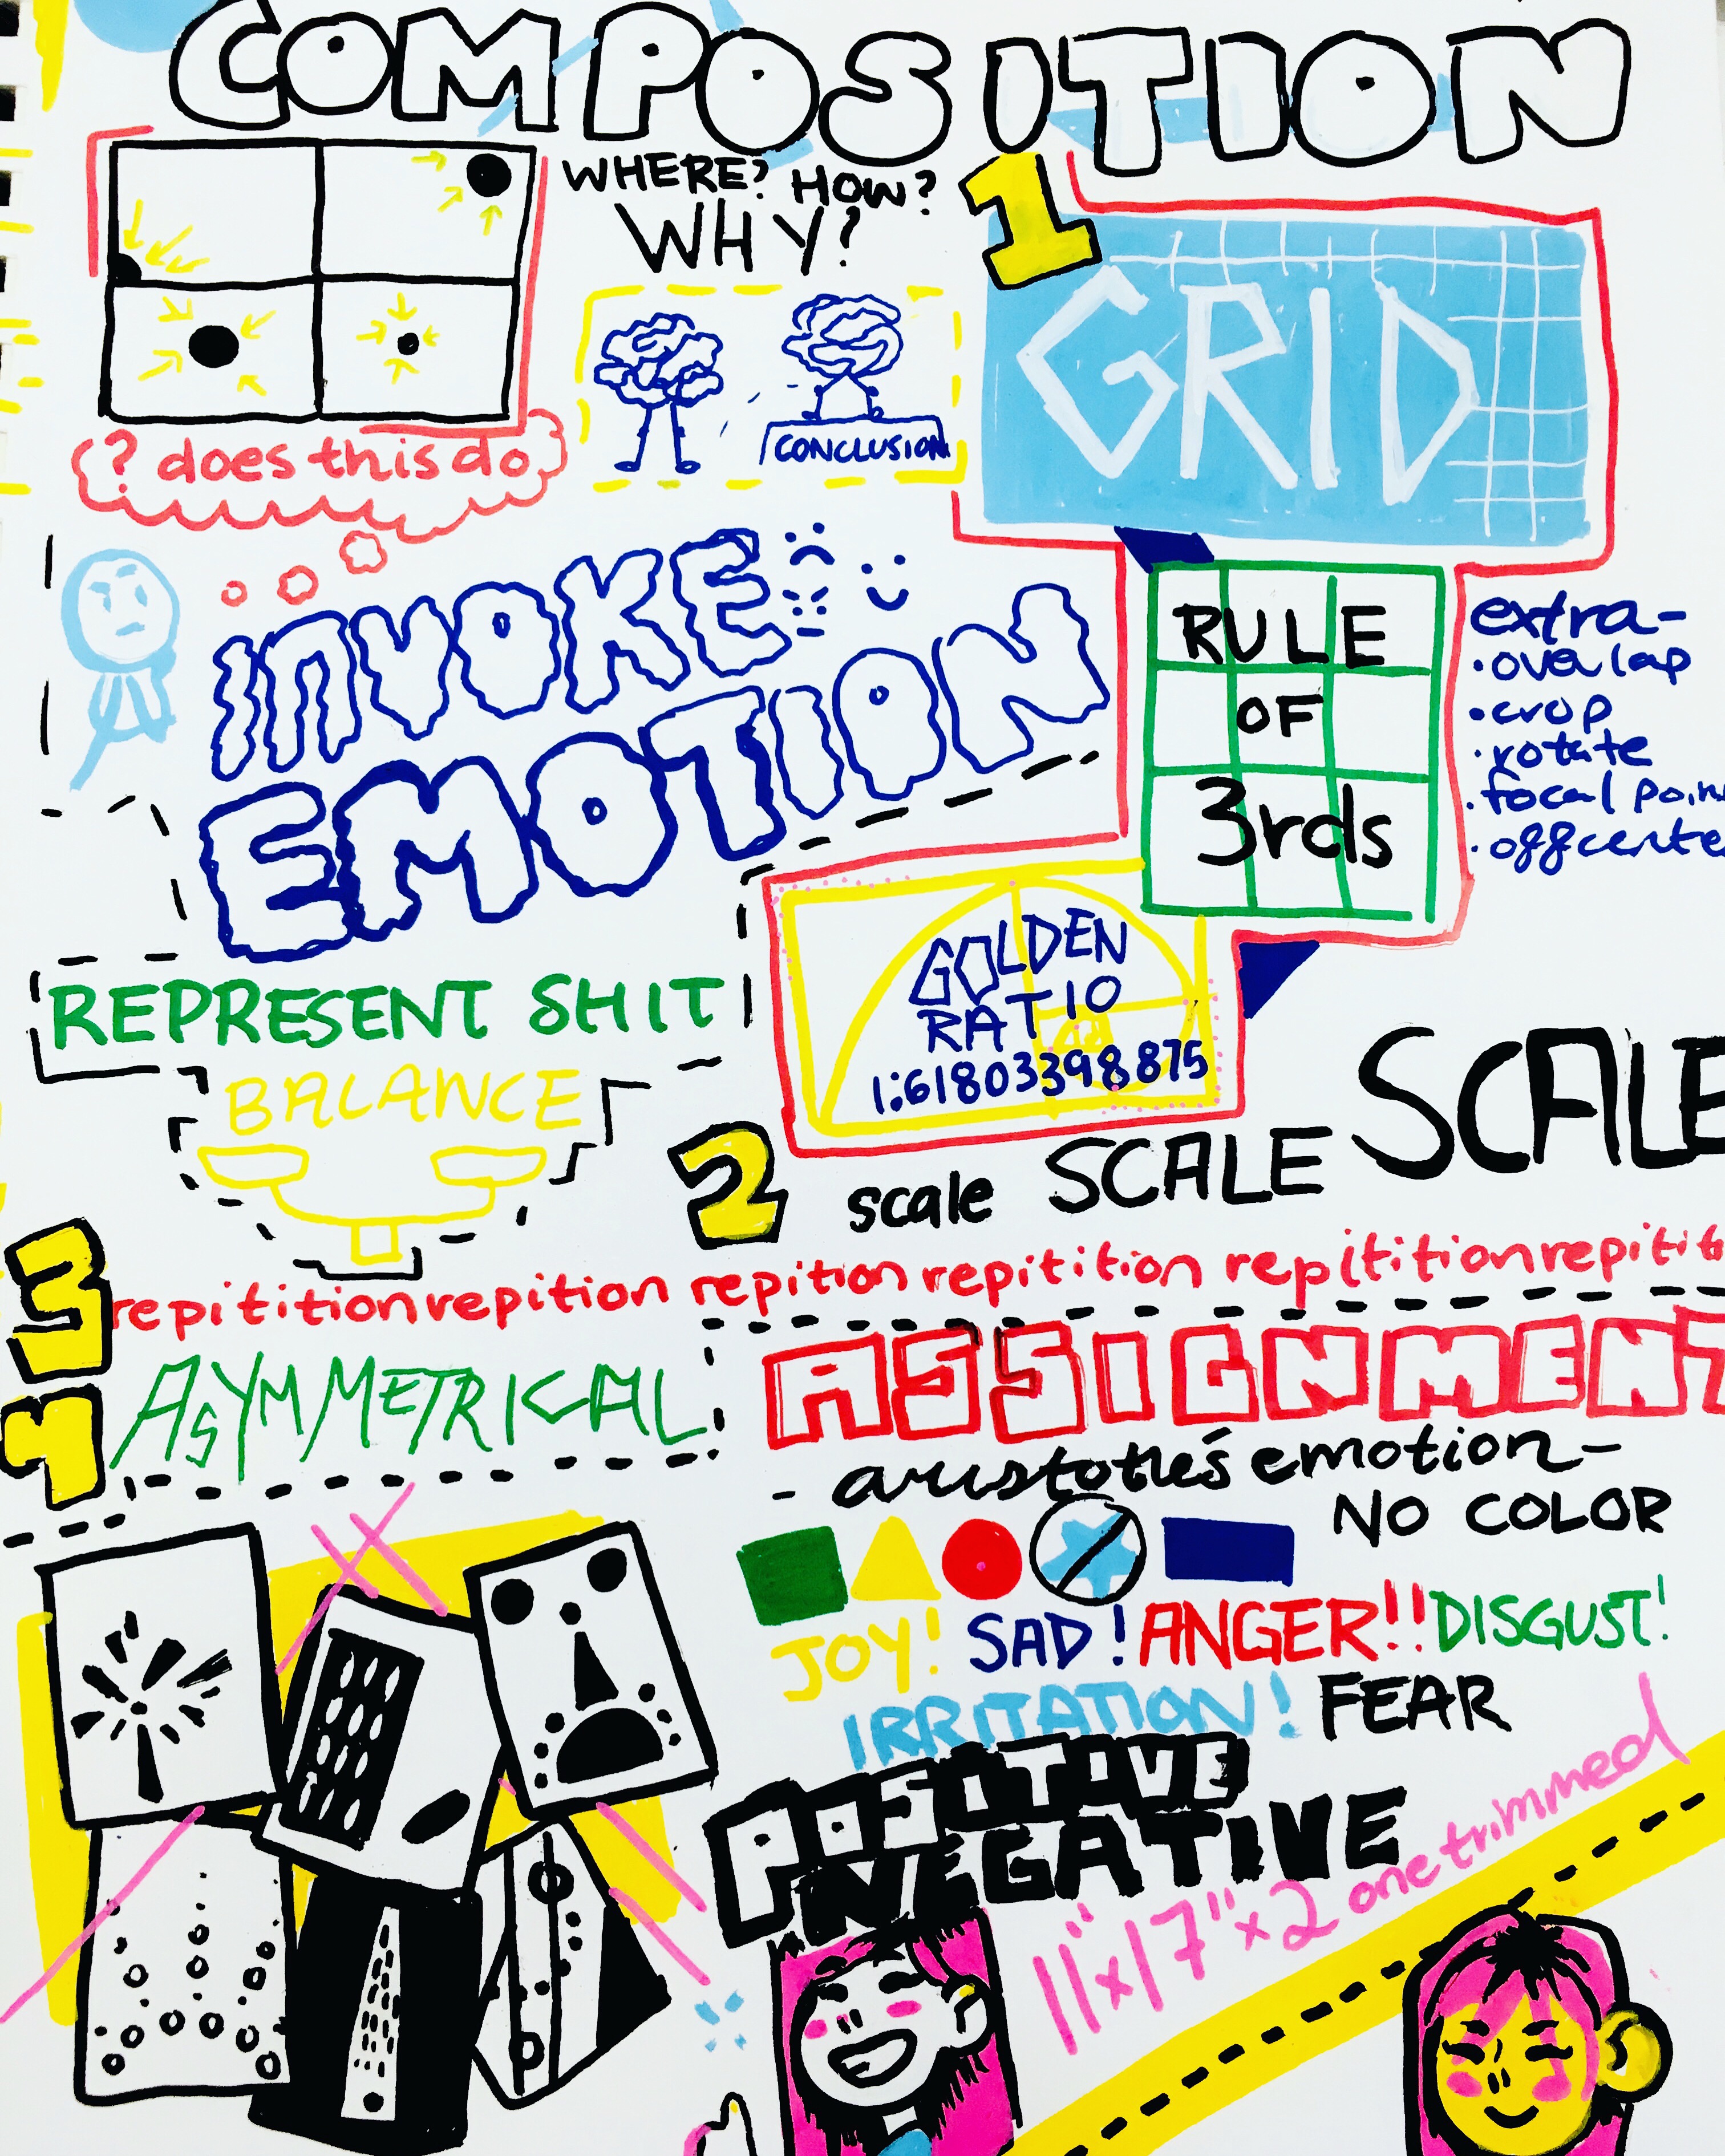 COMPOSITION
WHERE? HOW?
WHY?
1
GRID
CONCLUSION
? does this do
INVOKE
EMOTION
RULE
OF
3rds
extra-
·overlap
·crop
·rotate
·focal poin
·offcente
GOLDEN
RATIO
1:61803398875
REPRESENT SHIT
BALANCE
2
scale SCALE SCALE
3
repititionrepition repition repitition repititionrepitit
4
ASYMMETRICAL
ASSIGNMENT
- aristotle's emotion-
NO COLOR
JOY! SAD! ANGER!! DISGUST!
IRRITATION! FEAR
POSITIVE
NEGATIVE
11"x17"x2 one trimmed